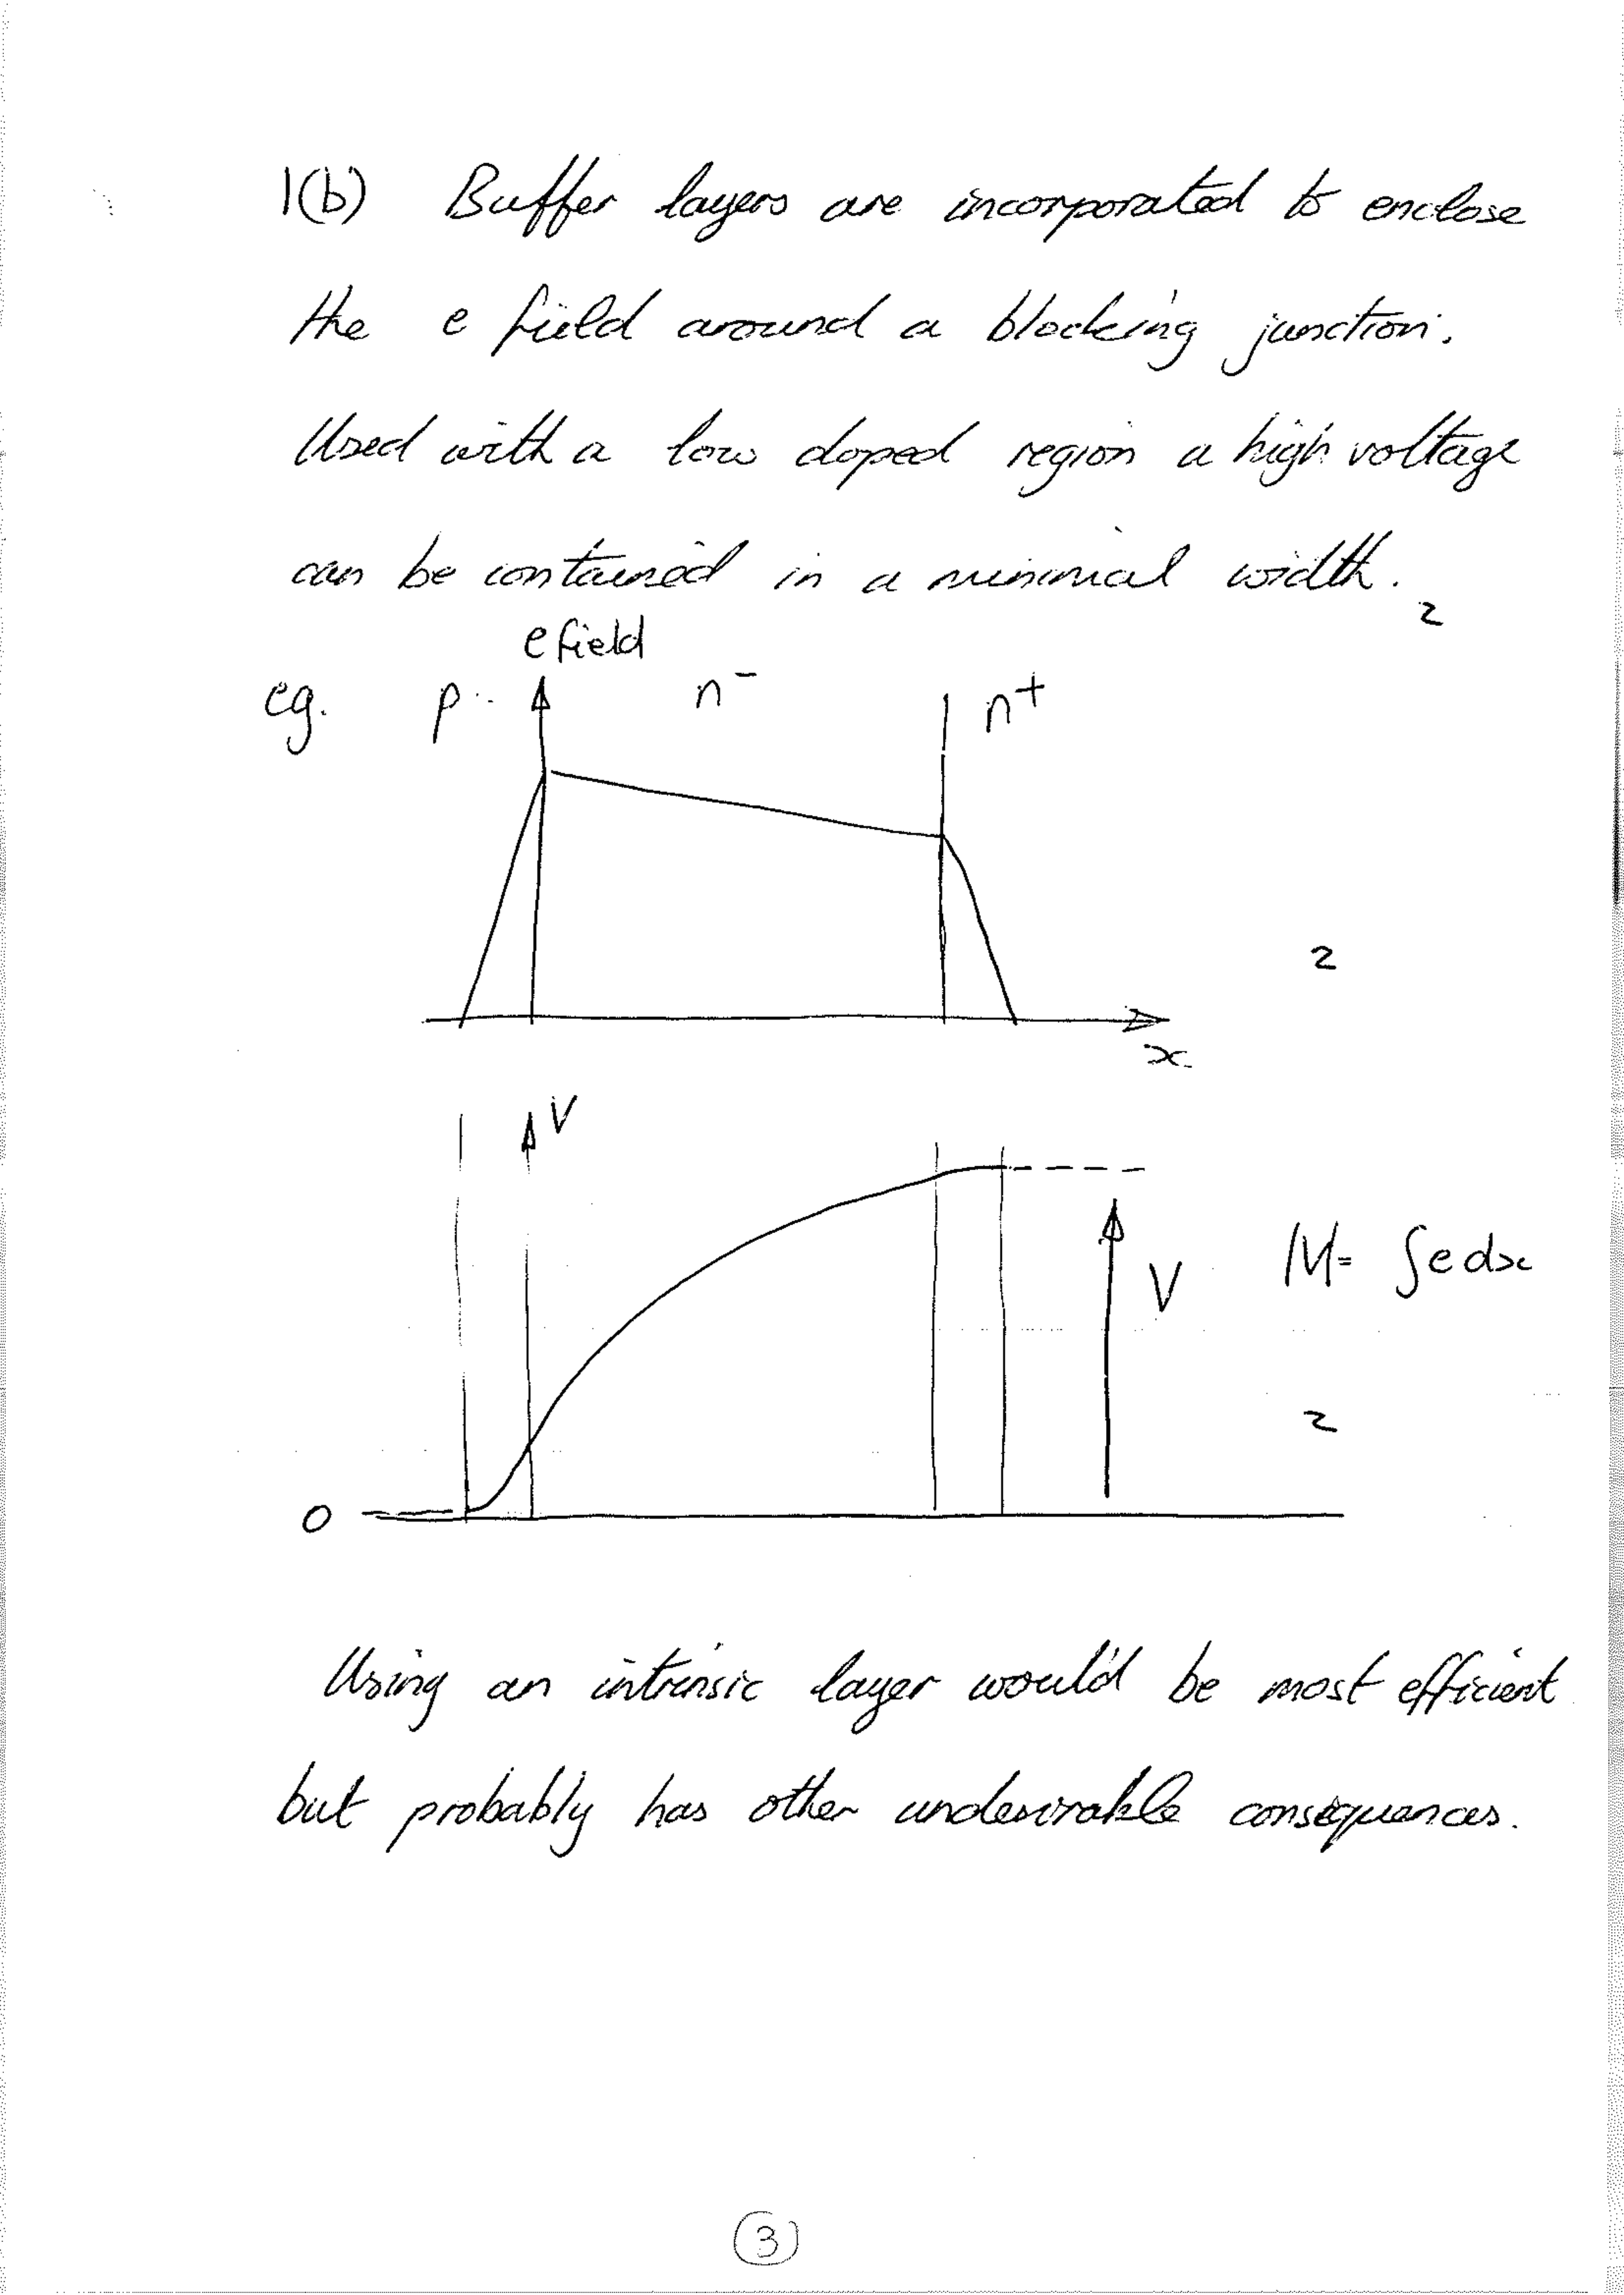 1(b) Buffer layers are incorporated to enclose
the e field around a blocking junction.
Used with a low doped region a high voltage
can be contained in a minimal width.
2
e field
eg. p n⁻ n⁺
2
x
V
V |V| = ∫e dx
2
0
Using an intrinsic layer would be most efficient
but probably has other undesirable consequences.
3